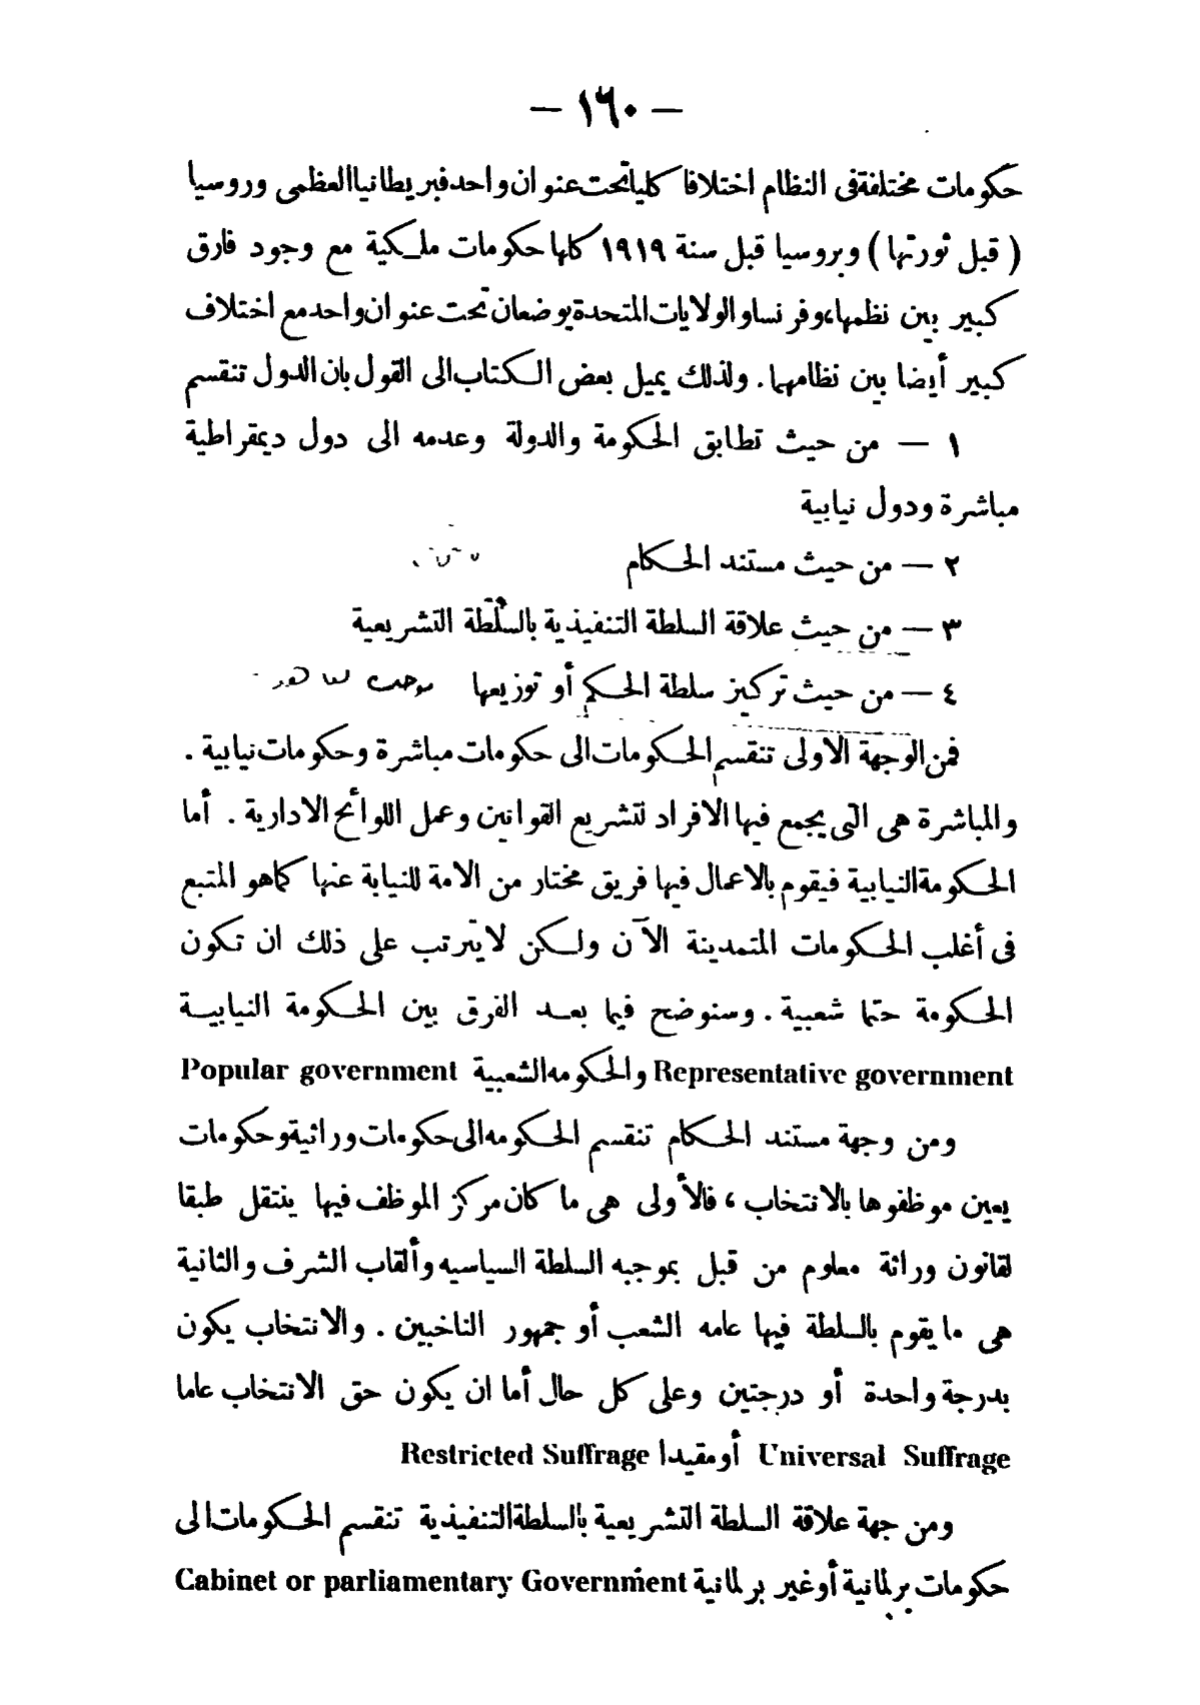 — ١٦٠ —
حكومات مختلفة فى النظام اختلافا كليا تحت عنوان واحد فبريطانيا العظمى وروسيا
( قبل ثورتها ) وبروسيا قبل سنة ١٩١٩ كلها حكومات ملكية مع وجود فارق
كبير بين نظمها، وفرنسا والولايات المتحدة يوضعان تحت عنوان واحد مع اختلاف
كبير أيضا بين نظامهما . ولذلك يميل بعض الكتاب الى القول بان الدول تنقسم
١ — من حيث تطابق الحكومة والدولة وعدمه الى دول ديمقراطية
مباشرة ودول نيابية
٢ — من حيث مستند الحكام
٣ — من حيث علاقة السلطة التنفيذية بالسلطة التشريعية
٤ — من حيث تركيز سلطة الحكم أو توزيعها
فمن الوجهة الاولى تنقسم الحكومات الى حكومات مباشرة وحكومات نيابية .
والمباشرة هى التى يجمع فيها الافراد لتشريع القوانين وعمل اللوائح الادارية . أما
الحكومة النيابية فيقوم بالاعمال فيها فريق مختار من الامة للنيابة عنها كما هو المتبع
فى أغلب الحكومات المتمدينة الآن ولكن لا يترتب على ذلك ان تكون
الحكومة حتما شعبية . وسنوضح فيما بعد الفرق بين الحكومة النيابية
Representative government والحكومه الشعبية Popular government
ومن وجهة مستند الحكام تنقسم الحكومه الى حكومات وراثية وحكومات
يعين موظفوها بالانتخاب ، فالأولى هى ما كان مركز الموظف فيها ينتقل طبقا
لقانون وراثة معلوم من قبل بموجبه السلطة السياسيه وألقاب الشرف والثانية
هى ما يقوم بالسلطة فيها عامه الشعب أو جمهور الناخبين . والانتخاب يكون
بدرجة واحدة أو درجتين وعلى كل حال أما ان يكون حق الانتخاب عاما
Universal Suffrage أو مقيدا Restricted Suffrage
ومن جهة علاقة السلطة التشريعية بالسلطة التنفيذية تنقسم الحكومات الى
حكومات برلمانية أو غير برلمانية Cabinet or parliamentary Government